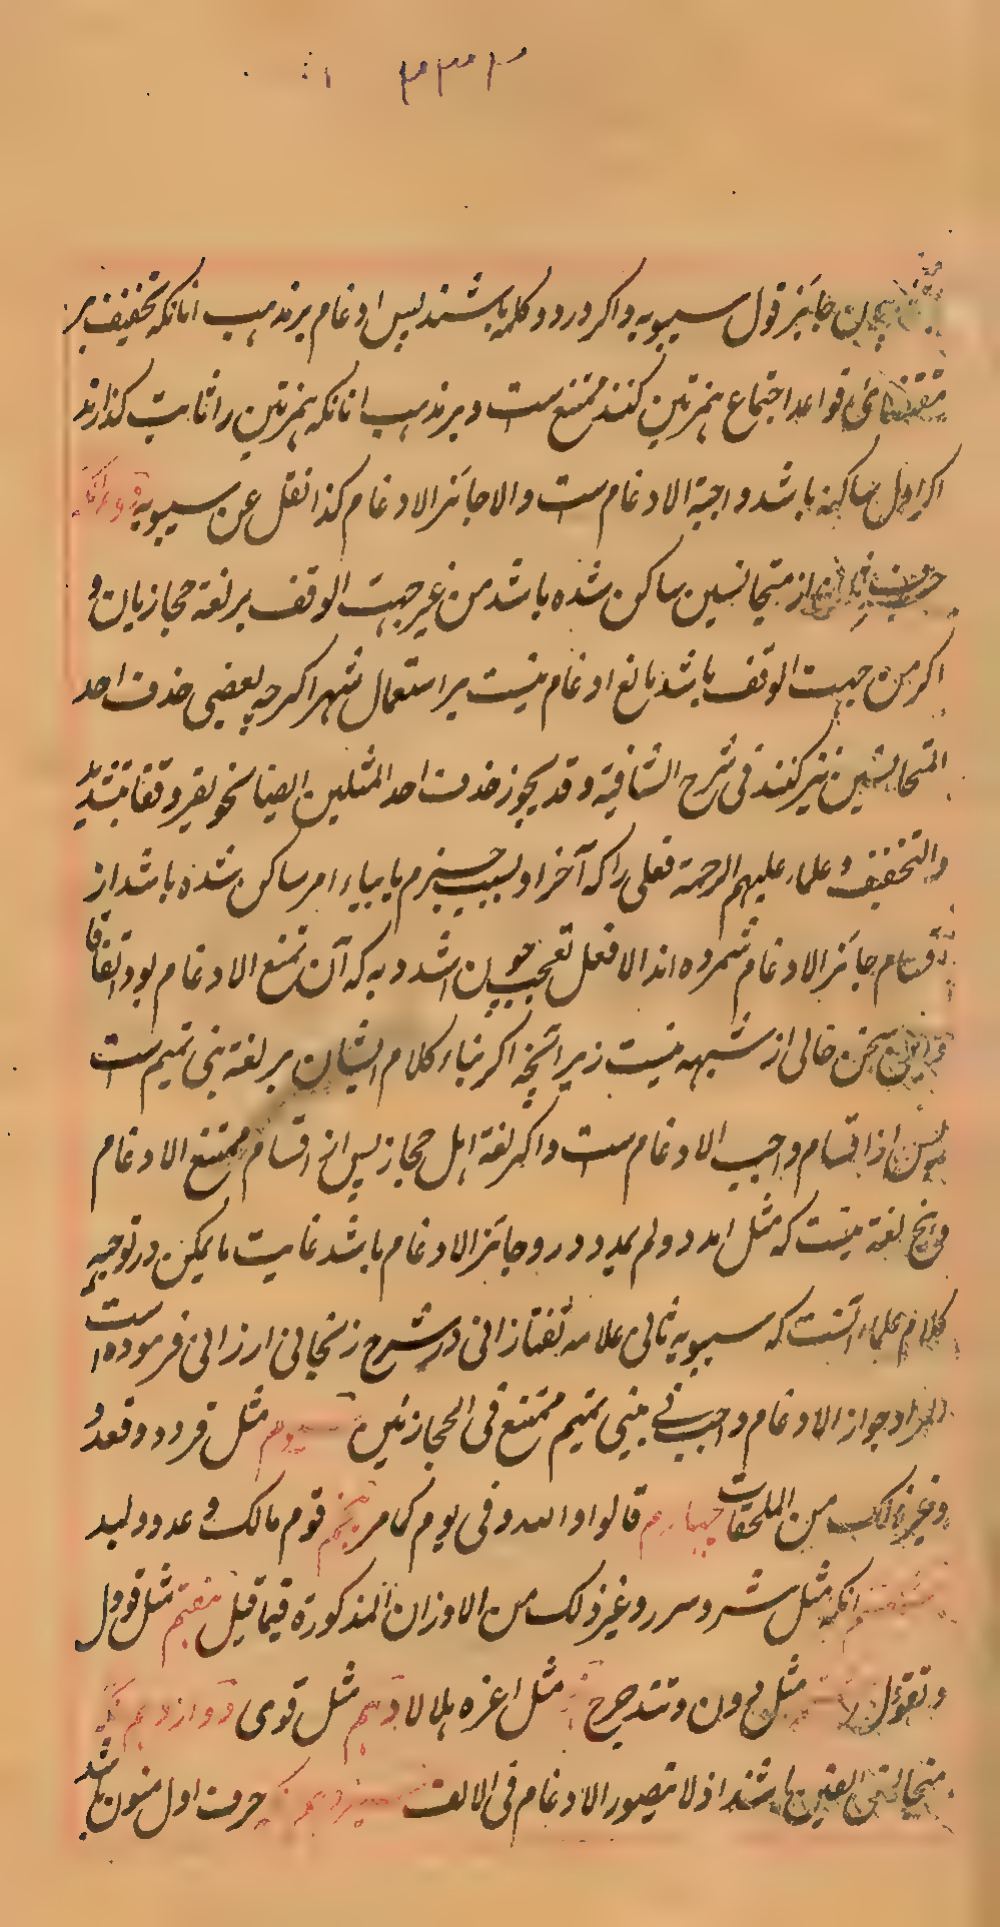 ۳۳۳
جائز قول سیبویه و اگر در دو کلمه باشند پس ادغام بر مذهب انانکه تخفیف بر
مقتضای قواعد اجتماع همزتین کنند ممتنع ست و بر مذهب انانکه همزتین را ثابت گذارند
اگر اول ساکنه باشد واجبة الادغام ست والا جائز الادغام کذا نقل عن سیبویه
از متجانسین ساکن شده باشد من غیر جهت الوقف بر لغة حجازیان و
اگر من جهت الوقف باشد مانع ادغام نیست بر استعمال اشهر اگرچه بعضی حذف احد
المتجانسین نیز کنند فی شرح الشافیة و قد یجوز حذف احد المثلین ایضا نحو یقر وقفا بتشدید
والتخفیف و علماء علیهم الرحمة فعلی را که آخر او بسبب جزم یا ببناء امر ساکن شده باشد از
اقسام جائز الادغام شمرده اند الا فعل تعجب چون اشدد به که آن ممتنع الادغام بود اتفاقا
و این سخن خالی از شبهه نیست زیرا نچه اگر بناء کلام ایشان بر لغة بنی تمیم ست
پس از اقسام واجب الادغام ست و اگر لغة اهل حجاز پس از اقسام ممتنع الادغام
و هیچ لغة نیست که مثل امدد و لم یمدد در و جائز الادغام باشد غایت ما یمکن در توجیه
کلام علماء آنست که سیبویه ثانی علامه تفتازانی در شرح زنجانی ارزانی فرموده است
المراد جواز الادغام واجب فی بنی تمیم ممتنع فی الحجازئین سوم مثل قردد و قعدد
و غیر ذلک من الملحقات چهارم قالوا و اللدد و فی یوم کما مر پنجم قوم مالک و عدد ولید
ششم انکه مثل شرر و سرر و غیر ذلک من الاوزان المذکورة فیما قیل هفتم مثل قوول
و تقوول مثل ددن و تتدحرج مثل اعزه هلالا دهم مثل قوی دوازدهم
متجانسین الفین باشند اذ لا یتصور الادغام فی الالف سیزدهم حرف اول منون باشد